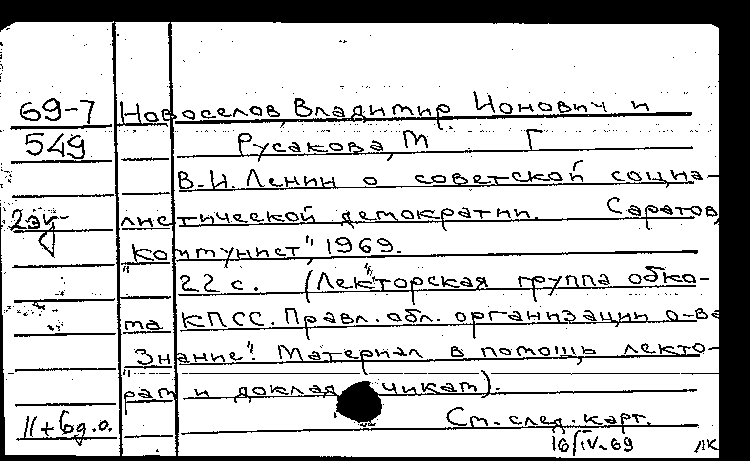 69-7 Новоселов, Владимир Ионович и
549 Русакова, М Г
В.И. Ленин о советской социа-
2эк- листической демократии. Саратов,
"Коммунист", 1969.
22 с. (Лекторская группа обко-
ма КПСС. Правл. обл. организации о-ва
"Знание". Материал в помощь лекто-
рам и доклад чикам).
Ст. след. карт.
16/IV-69 ЛК